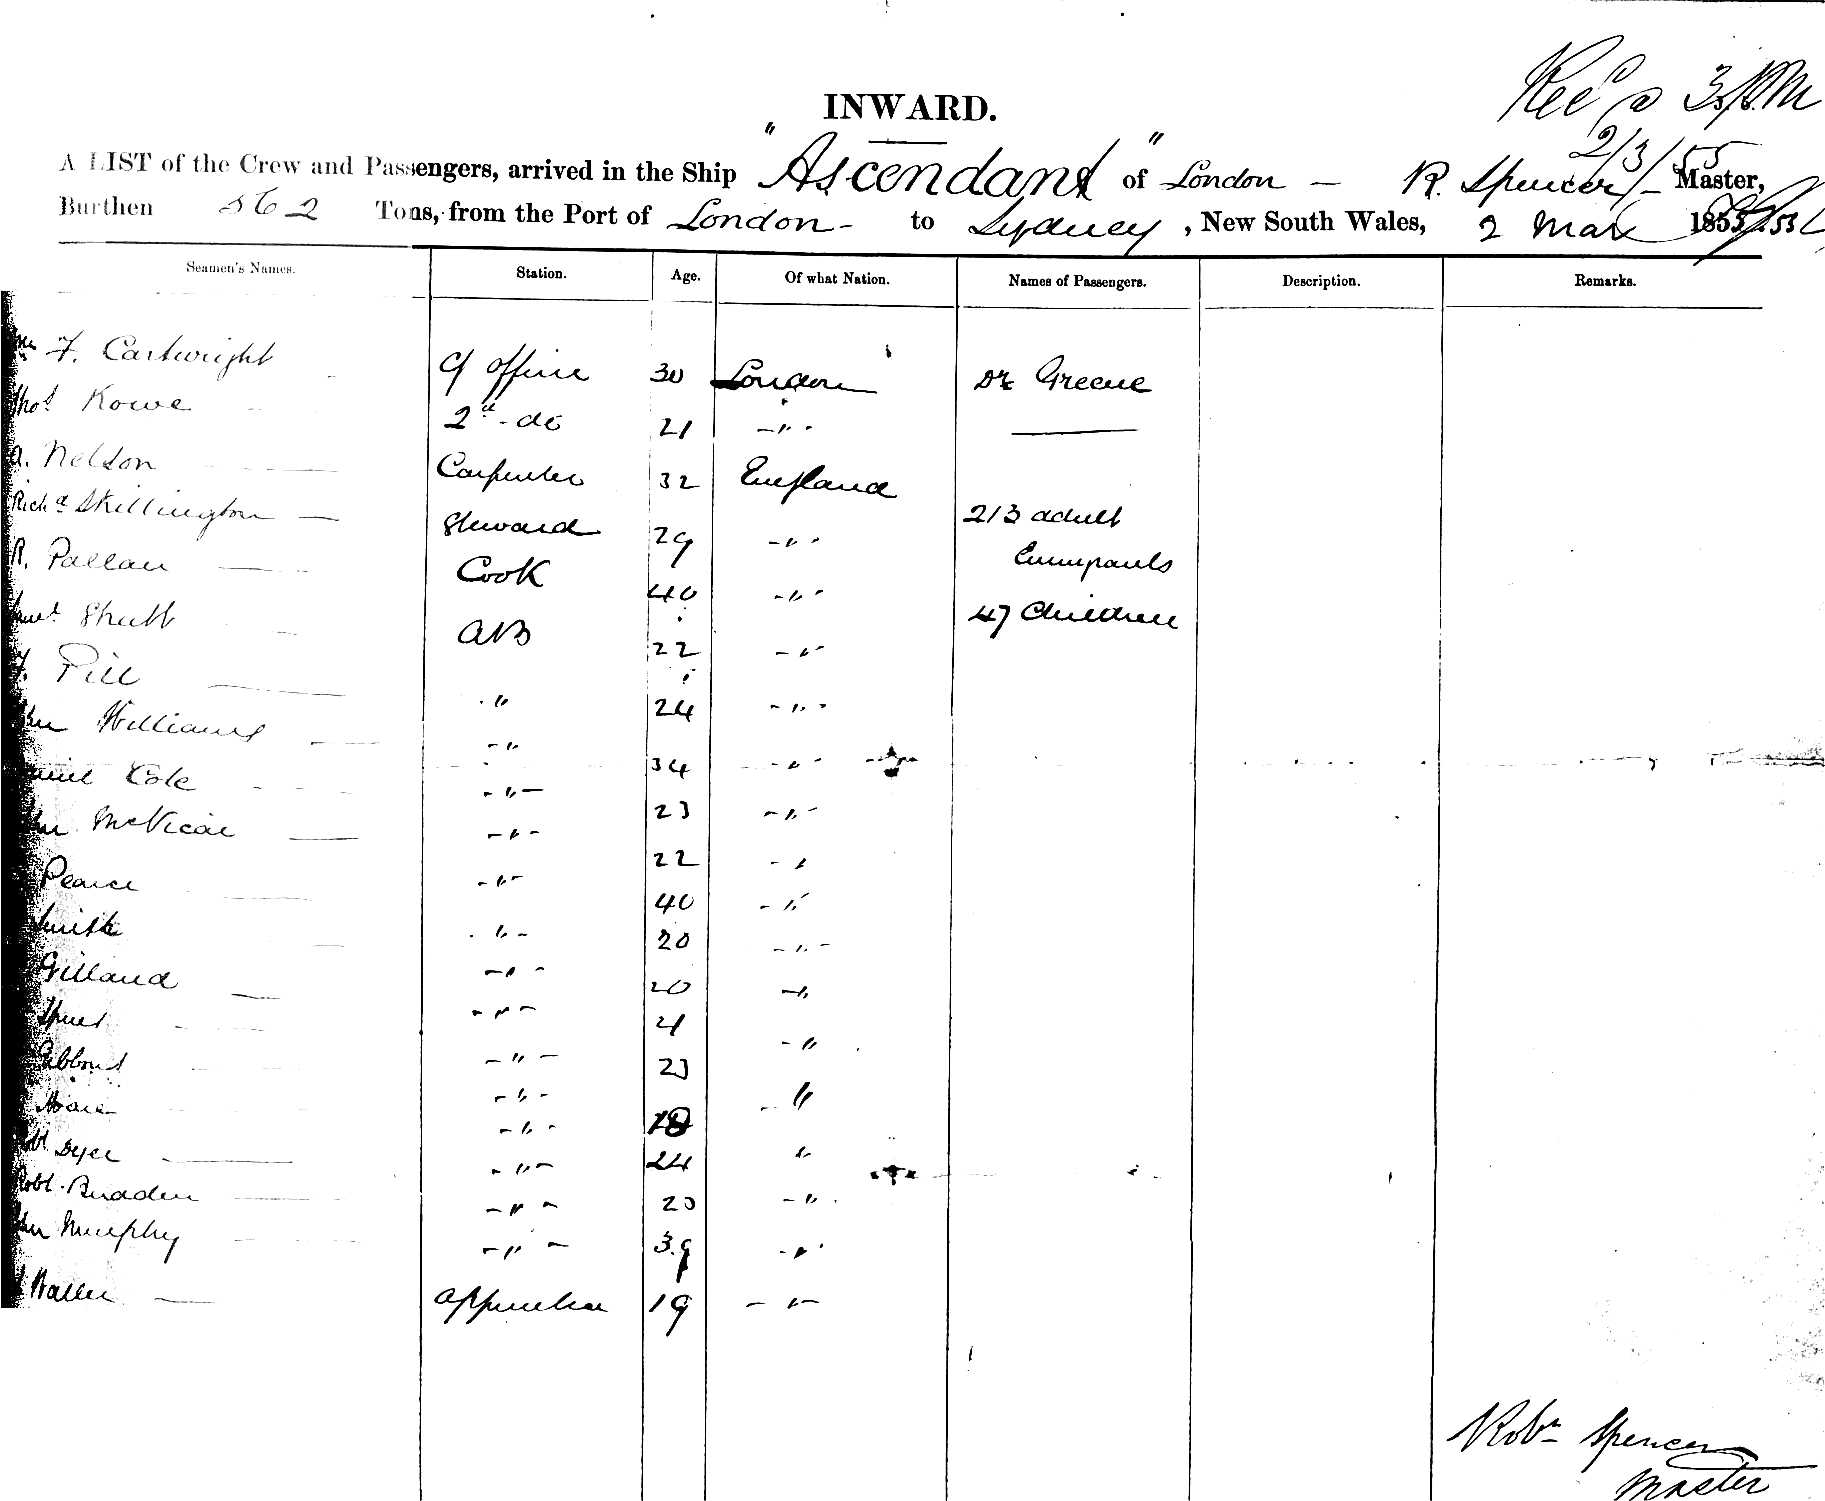 Rec'd @ 3 P.M
2/3/55
INWARD.
A LIST of the Crew and Passengers, arrived in the Ship "Ascendant" of London — R. Spencer — Master,
Burthen 562 Tons, from the Port of London - to Sydney, New South Wales, 2 Mar 1855
Seamen's Names. Station. Age. Of what Nation. Names of Passengers. Description. Remarks.
F. Cartwright 30 London Dr Greene
Thos Rowe 2d - do 21 - " -
A. Nelson Carpenter 32 England
Richd Skillington — Steward 29 - " - 213 adult
Emigrants
R. Pallau — Cook 40 - " -
Shutt AB 22 - " - 47 Children
F. Pill — " 24 - " -
Williams — - " 34 - " -
Cole - " - 23 - " -
McVicar — - " - 22 - "
Pearce — - " - 40 - "
Smith — " - 20 - " -
Gilland — - " - 20 - "
- " - 21 - "
Gibbons - " - 23 - "
Hoare - " - 18 "
Robt Dyer — - " - 24 - "
Robt. Bradden — - " - 23 - "
Murphy - " - 39 - "
Waller — apprentice 19 - " -
Robt Spencer
Master